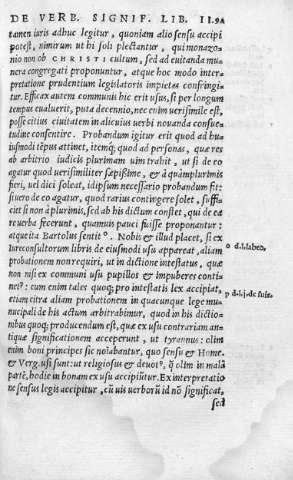 DE VERB. SIGNIF. LIB. II. 91
tamen iuris adhuc legitur, quoniam alio sensu accipi
potest, nimirum ut hi soli plectantur, qui monazo-
nio non ob CHRISTI cultum, sed ad euitanda mu
nera congregati proponuntur, atque hoc modo inter-
pretatione prudentium legislatoris impietas confringi-
tur. Efficax autem communis hic erit usus, si per longum
tempus eualuerit, puta decennio, nec enim uerisimile est,
posse citius ciuitatem in alicuius uerbi nouanda consue
tudine consentire. Probandum igitur erit quod ad hu
iusmodi tẽpus attinet, idemq; quod ad personas, quæ res
ab arbitrio iudicis plurimam uim trahit, ut si de eo
agatur quod uerisimiliter sæpissime, & à quàmplurimis
fieri, uel dici soleat, id ipsum necessario probandum sit:
si uero de eo agatur, quod rarius contingere solet, suffi
ciet si non à plurimis, sed ab his dictum constet, qui de ea
re uerba fecerunt, quamuis pauci fuisse proponantur:
atque ita Bartolus sentit o. Nobis & illud placet, si ex
iureconsultorum libris de eiusmodi usu appareat, aliam
probationem non requiri, ut in dictione intestatus, quæ
non nisi ex communi usu pupillos & impuberes conti-
net p: cum enim tales quoq; pro intestatis lex accipiat,
etiam citra aliam probationem in quacunque lege mu
nicipali de his actum arbitrabimur, quod in his dictio-
nibus quoq; producendum est, quæ ex usu contrariam an-
tiquæ significationem acceperunt, ut tyrannus: olim
enim boni principes sic notabantur, quo sensu & Home.
& Verg. usi sunt: ut religiosus & deuot9, q̃ olim in malã
partẽ, hodie in bonam ex usu accipiũtur. Ex interpretatio
ne sensus legis accipitur, cũ uis uerborũ id nõ significat,
sed
o d.l. labeo.
p d.l.j. de suis.